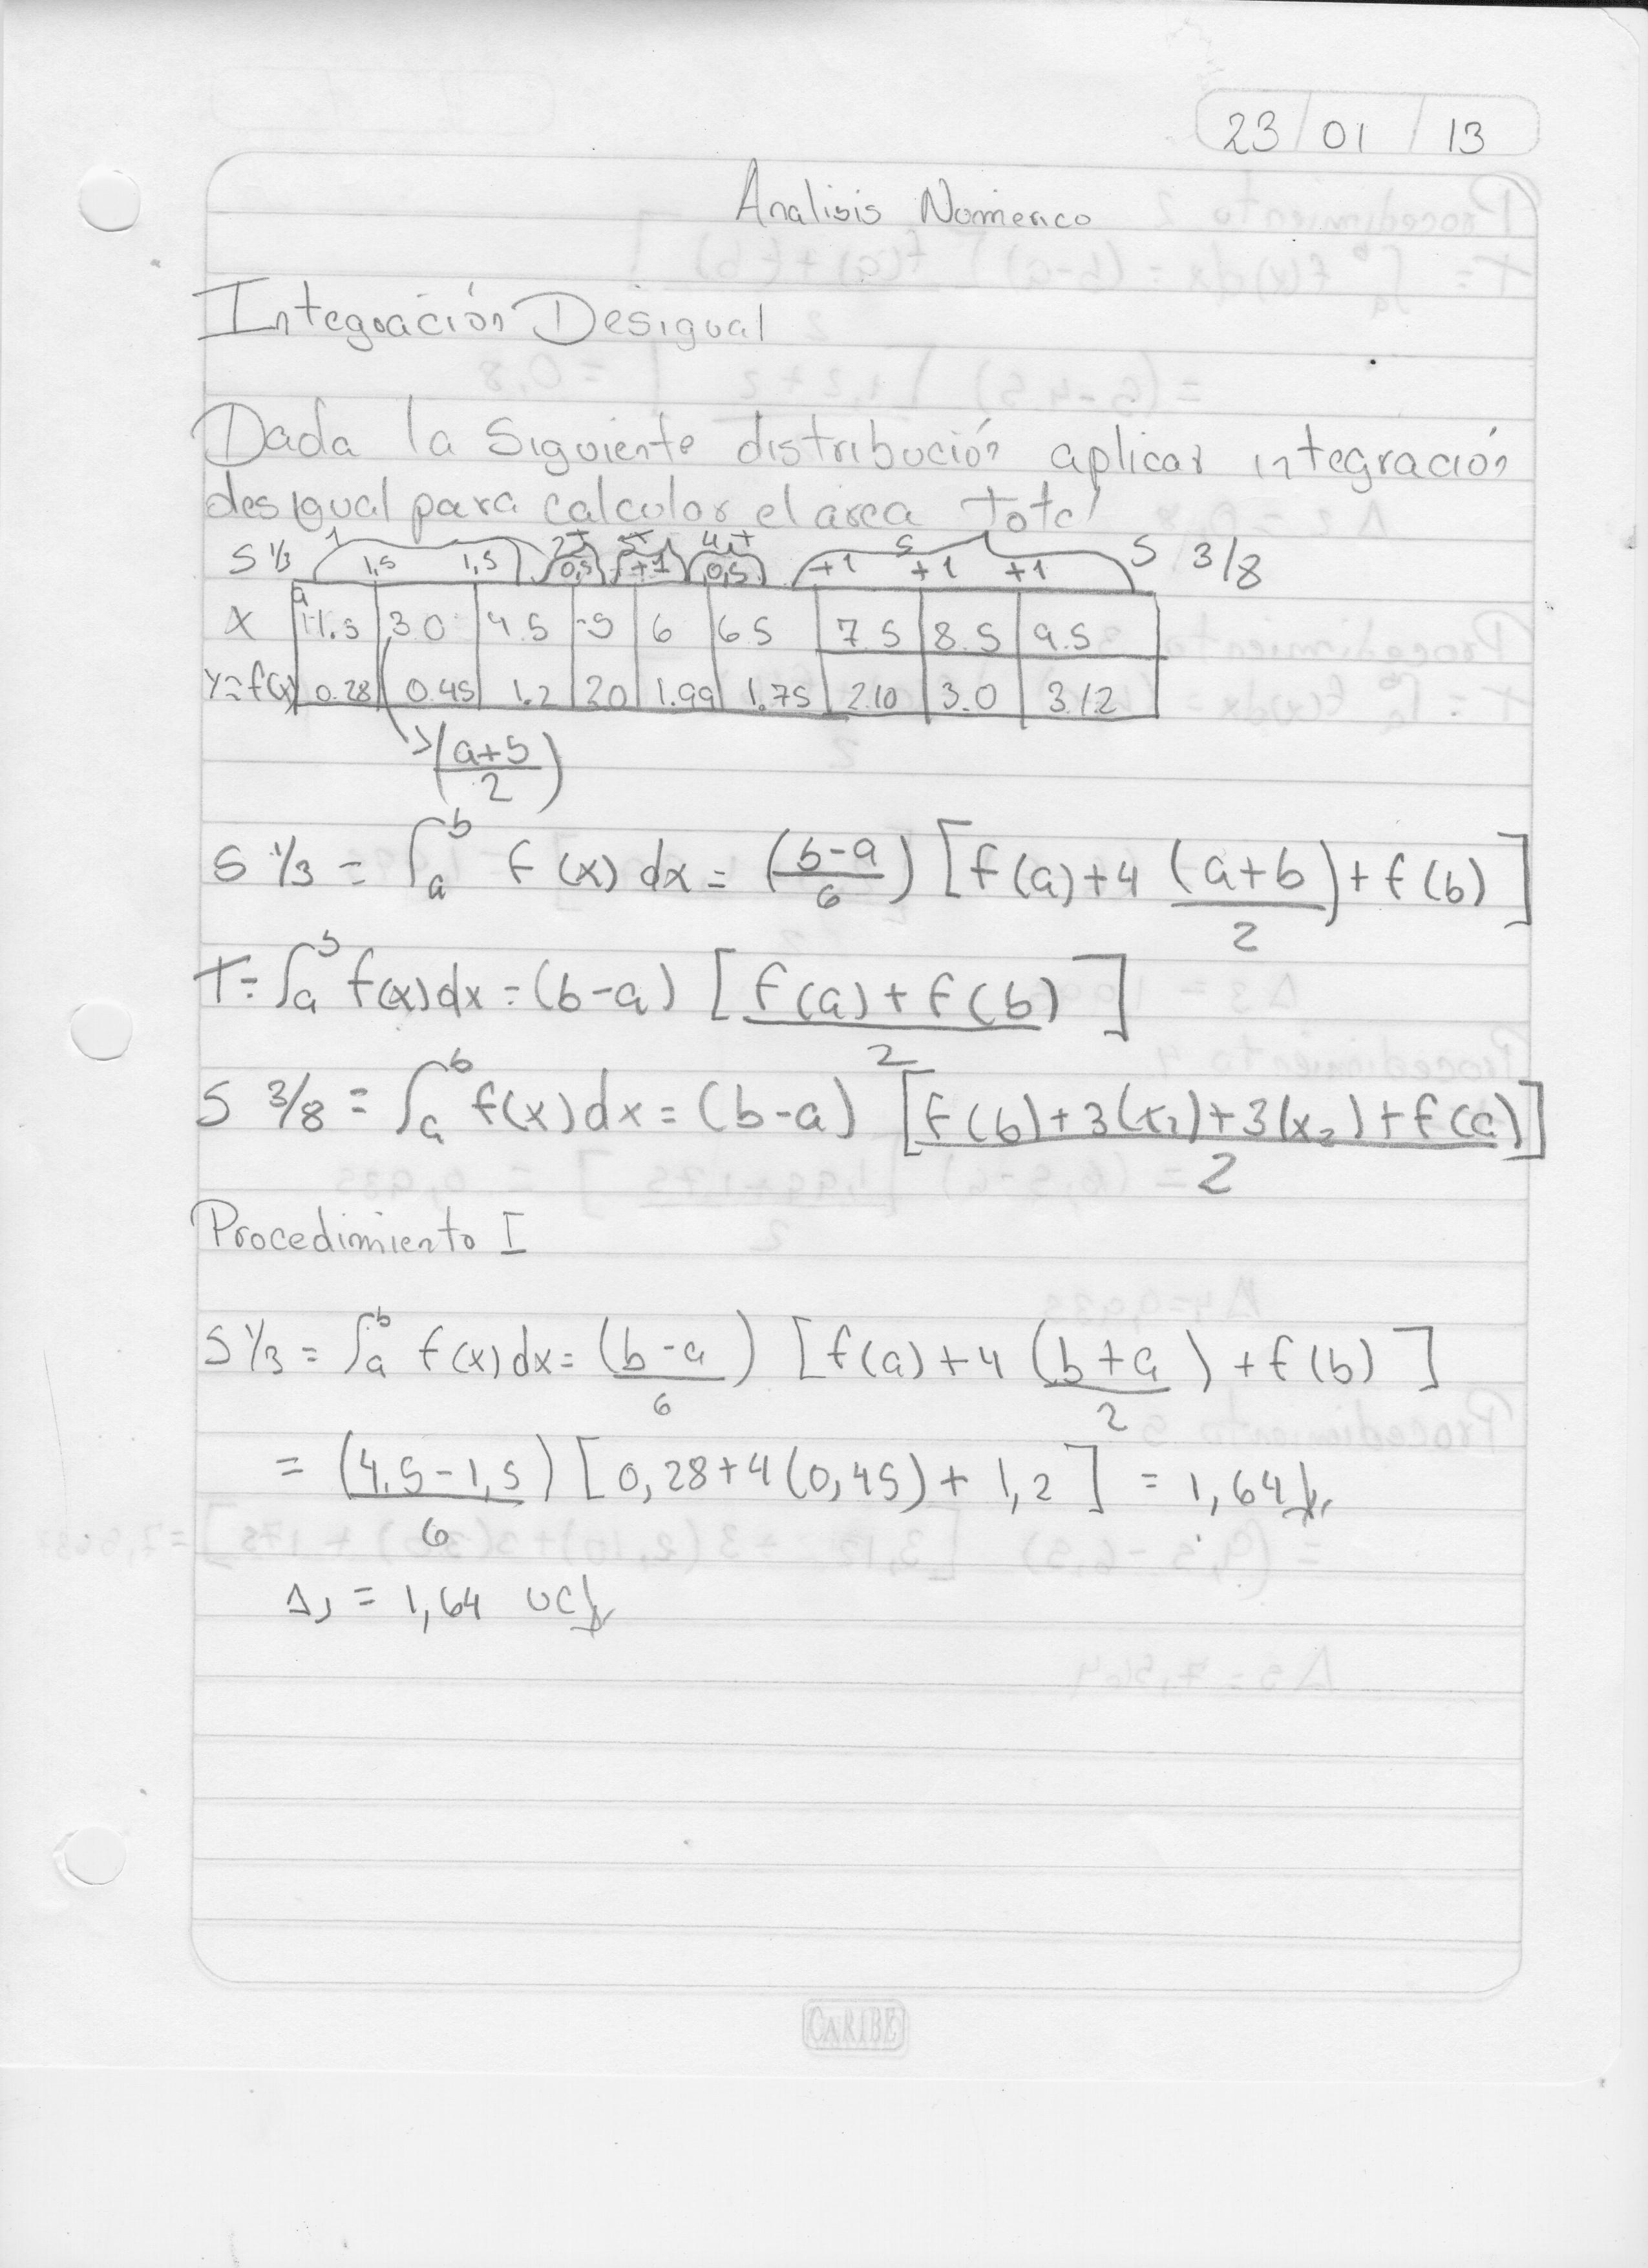 23/01/13
Analisis Numerico
Integración Desigual
Dada la Siguiente distribución aplicar integración
desigual para calcular el area total
S 1/3 1 1,5 1,5 2T 0,5 3T +1 4T 0,5 +1 5 +1 +1 S 3/8
a
X 1.5 3.0 4.5 5 6 6.5 7.5 8.5 9.5
Y=f(x) 0.28 0.45 1.2 2.0 1.99 1.75 2.10 3.0 3.12
(a+b)/2
S 1/3 = ∫a^b f(x)dx = (b-a)/6 [f(a)+4 (a+b)/2 + f(b)]
T = ∫a^b f(x)dx = (b-a) [f(a)+f(b)]/2
S 3/8 = ∫a^b f(x)dx = (b-a) [f(b)+3(x1)+3(x2)+f(a)]/2
Procedimiento I
S 1/3 = ∫a^b f(x)dx = (b-a)/6 [f(a)+4 (b+a)/2 + f(b)]
= (4.5-1,5)/6 [0,28+4(0,45)+1,2] = 1,64
Δ1 = 1,64 uc
CARIBE